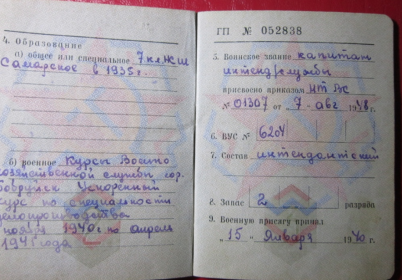 4. Образование
а) общее или специальное 7 кл. ЖШ
Самарское в 1935 г.
б) военное Курсы Военно
хозяйственной службы гор.
Бобруйск Ускоренный
курс по специальности
делопроизводства
ноября 1940г по апрель
1941 года
ГП № 052838
5. Воинское звание капитан
интенд/службы
присвоено приказом
№ 01307 от "7" авг 19
6. ВУС № 6204
7. Состав интендантский
8. Запас 2 разряда
9. Военную присягу принял
"15" Января 1940 г.